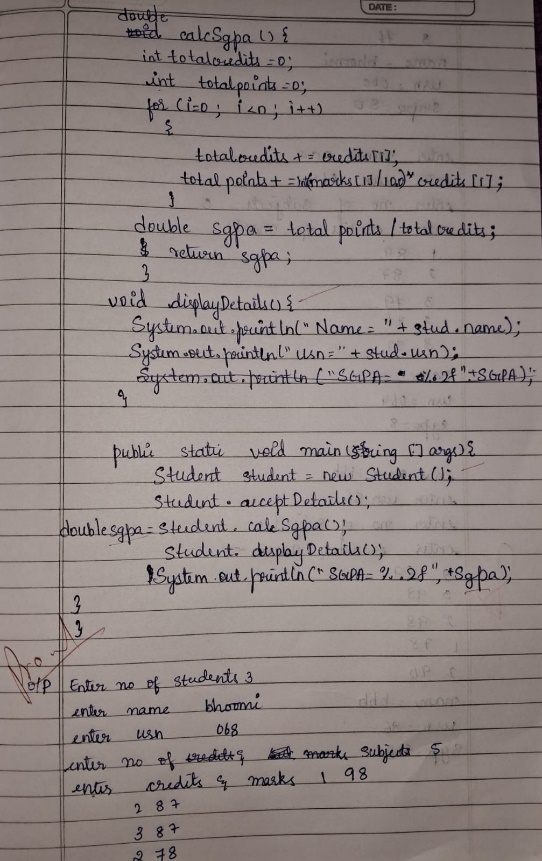 DATE:
double
void calcSgpa () {
int totalcredits = 0;
int totalpoints = 0;
for (i=0 ; i<n ; i++)
{
totalcredits + = credits [i];
total points + = (marks [i]/100)* credits [i];
}
double sgpa = total points / total credits;
return sgpa;
}
void displayDetails () {
System.out.println(" Name = " + stud.name);
System.out.println(" usn = " + stud.usn);
System.out.println ("SGPA= %.2f"+SGPA);
}
public static void main (String [] args) {
Student student = new Student ();
Student . accept Details ();
double sgpa = Student. calc Sgpa();
Student. display Details ();
System.out.println (" SGPA= %.2f", +Sgpa);
}
}
o/p Enter no of students 3
enter name bhoomi
enter usn 068
enter no of credits & marks subjects 5
enter credits & marks 1 98
2 87
3 87
2 78